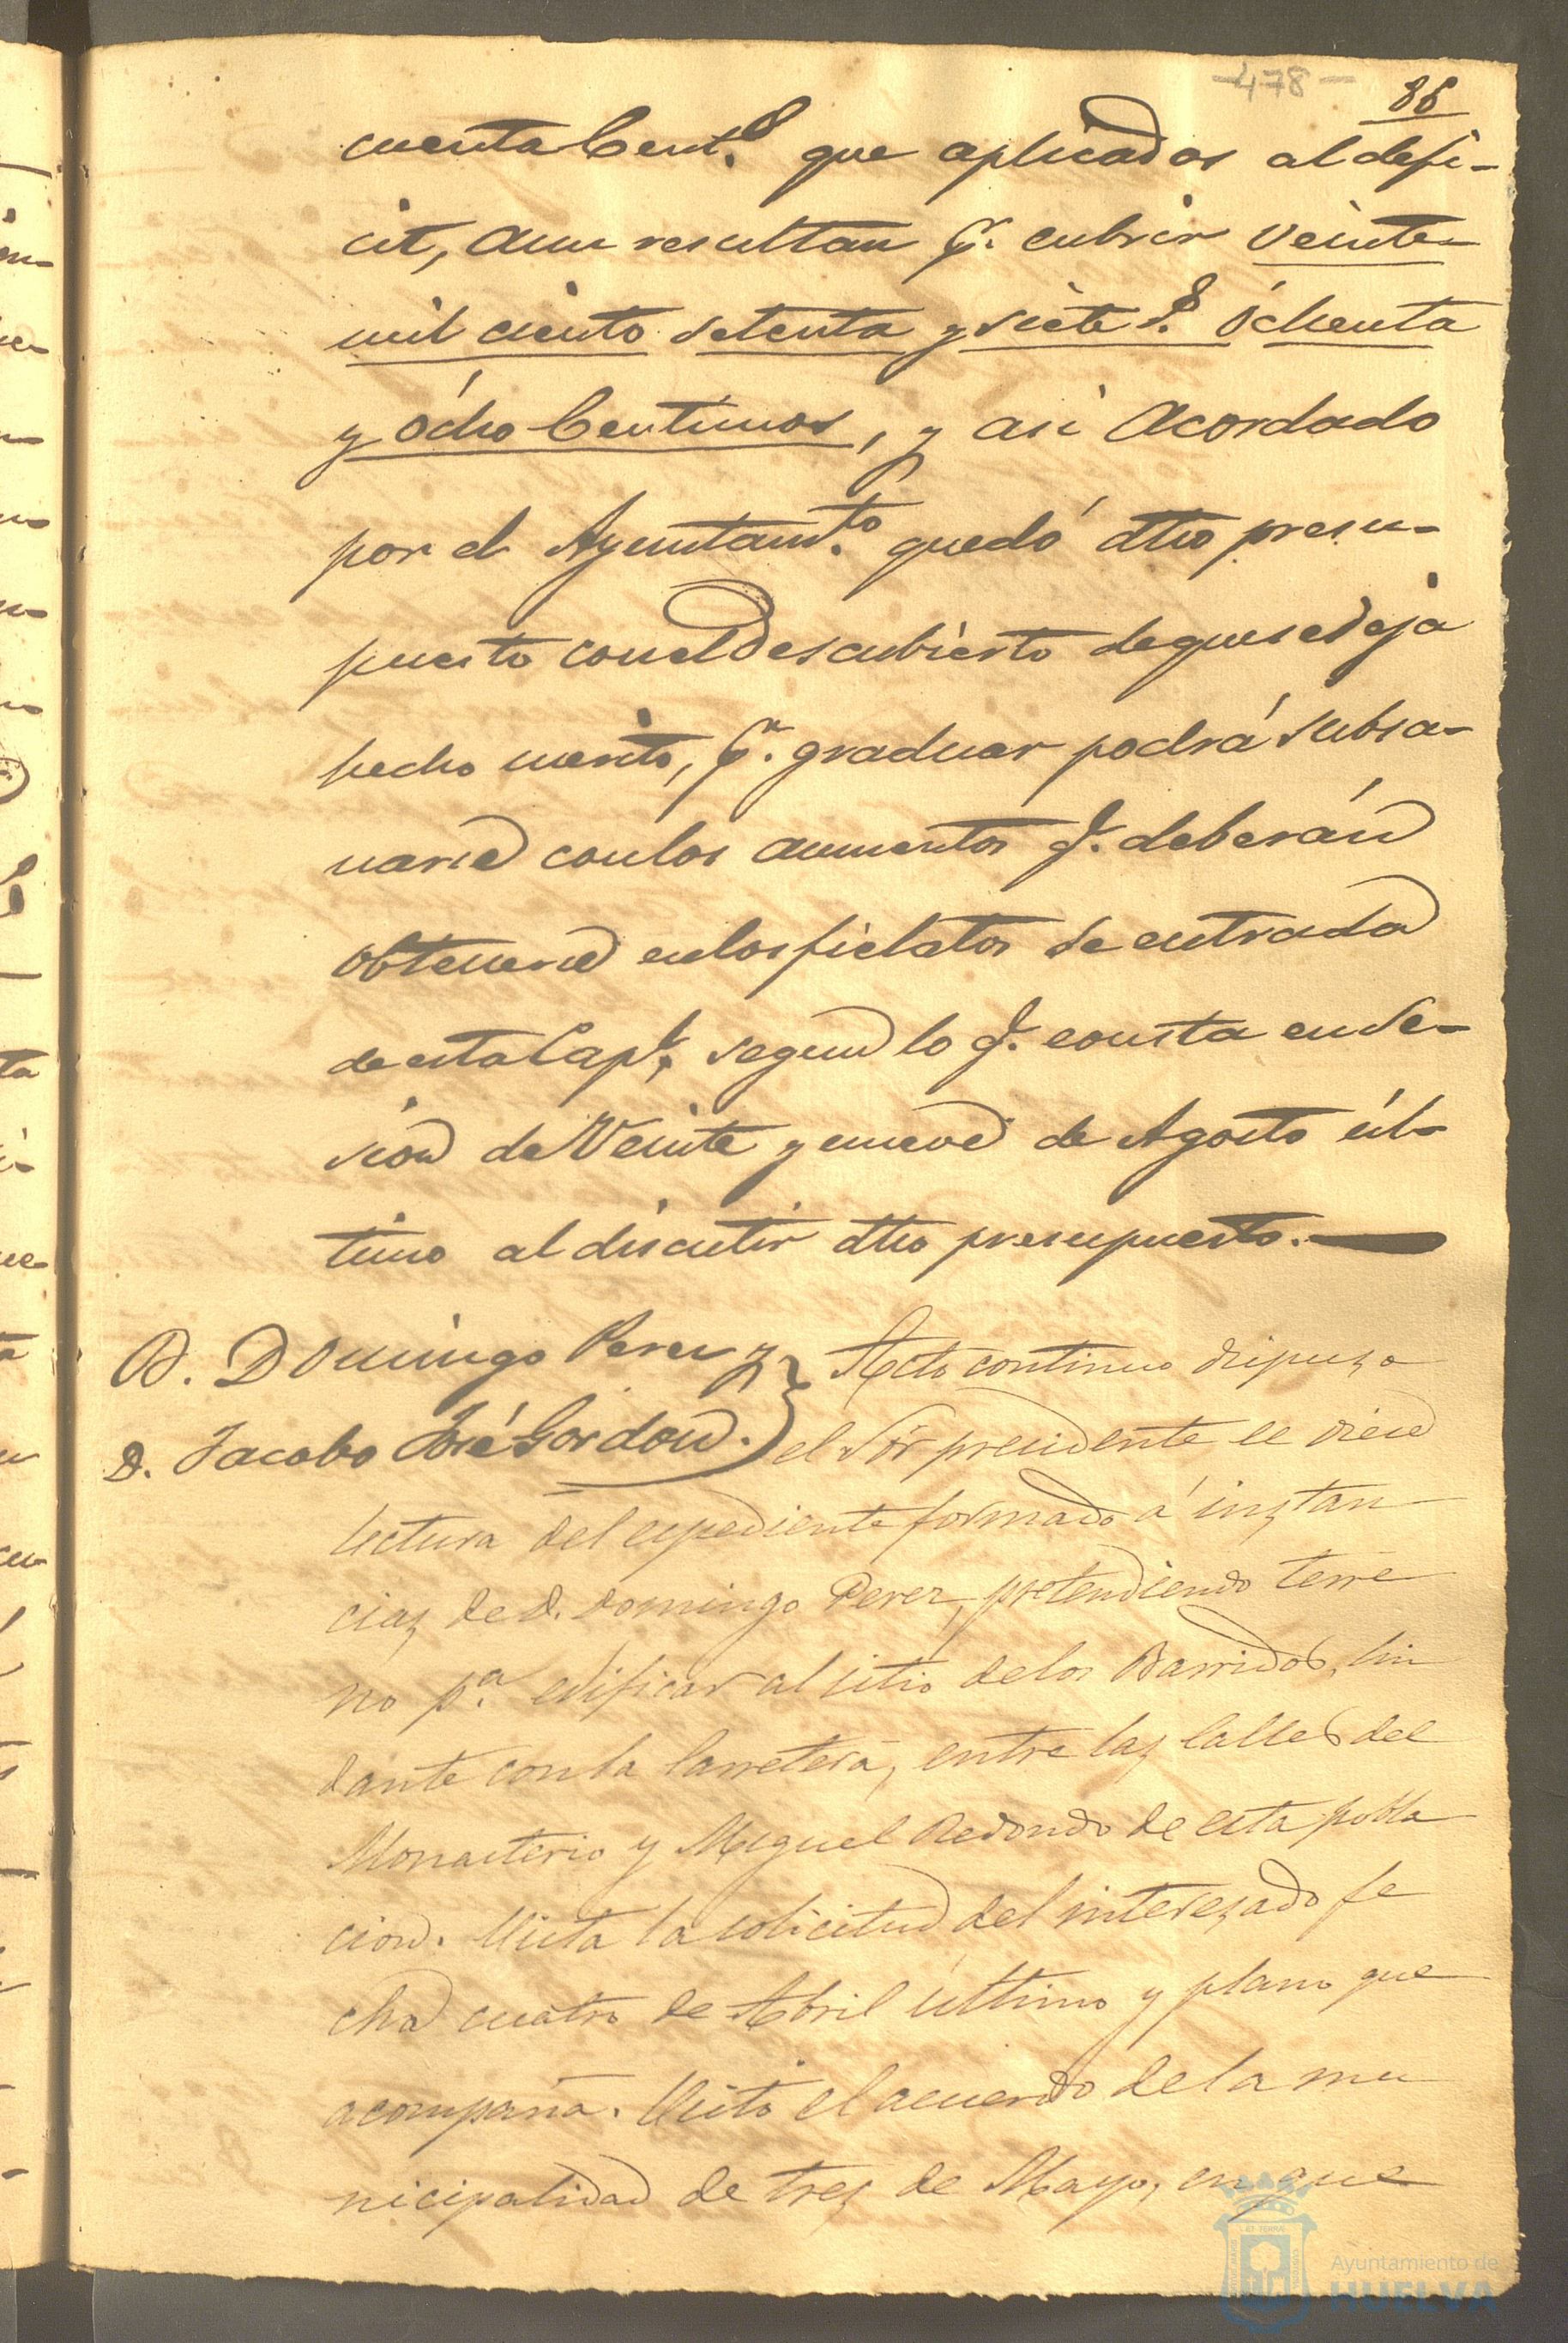 -478-
88
cuenta Cent.s que aplicados al defi-
cit, aun resultan p.r cubrir veinte
mil ciento setenta y siete r.s óchenta
y ócho Centimos, y asi Acordado
por el Ayuntam.to quedó dho presu-
puesto con el descubierto de que se deja
hecho merito, p.r graduar podrá subsa-
narse con los aumentos q.e deberán
obtenerse en los fielatos de entrada
de esta Cap.l, segun lo q.e consta en Se-
sion de Veinte y nueve de Agosto úl-
timo al discutir dho presupuesto.
D. Domingo Perez y
D. Jacobo José Gordon.
Acto continuo dispuso
el Sor presidente se diese
lectura del espediente formado á instan
cias de D. Domingo Perez, pretendiendo terre
no p.a edificar al sitio de los Barridos, lin
dante con la Carretera, entre las Calles del
Monasterio y Miguel Redondo de esta pobla
cion. Vista la solicitud del interesado fe
cha cuatro de Abril último y plano que
acompaña. Visto el acuerdo de la mu
nicipalidad de tres de Mayo, en que
Ayuntamiento de
HUELVA